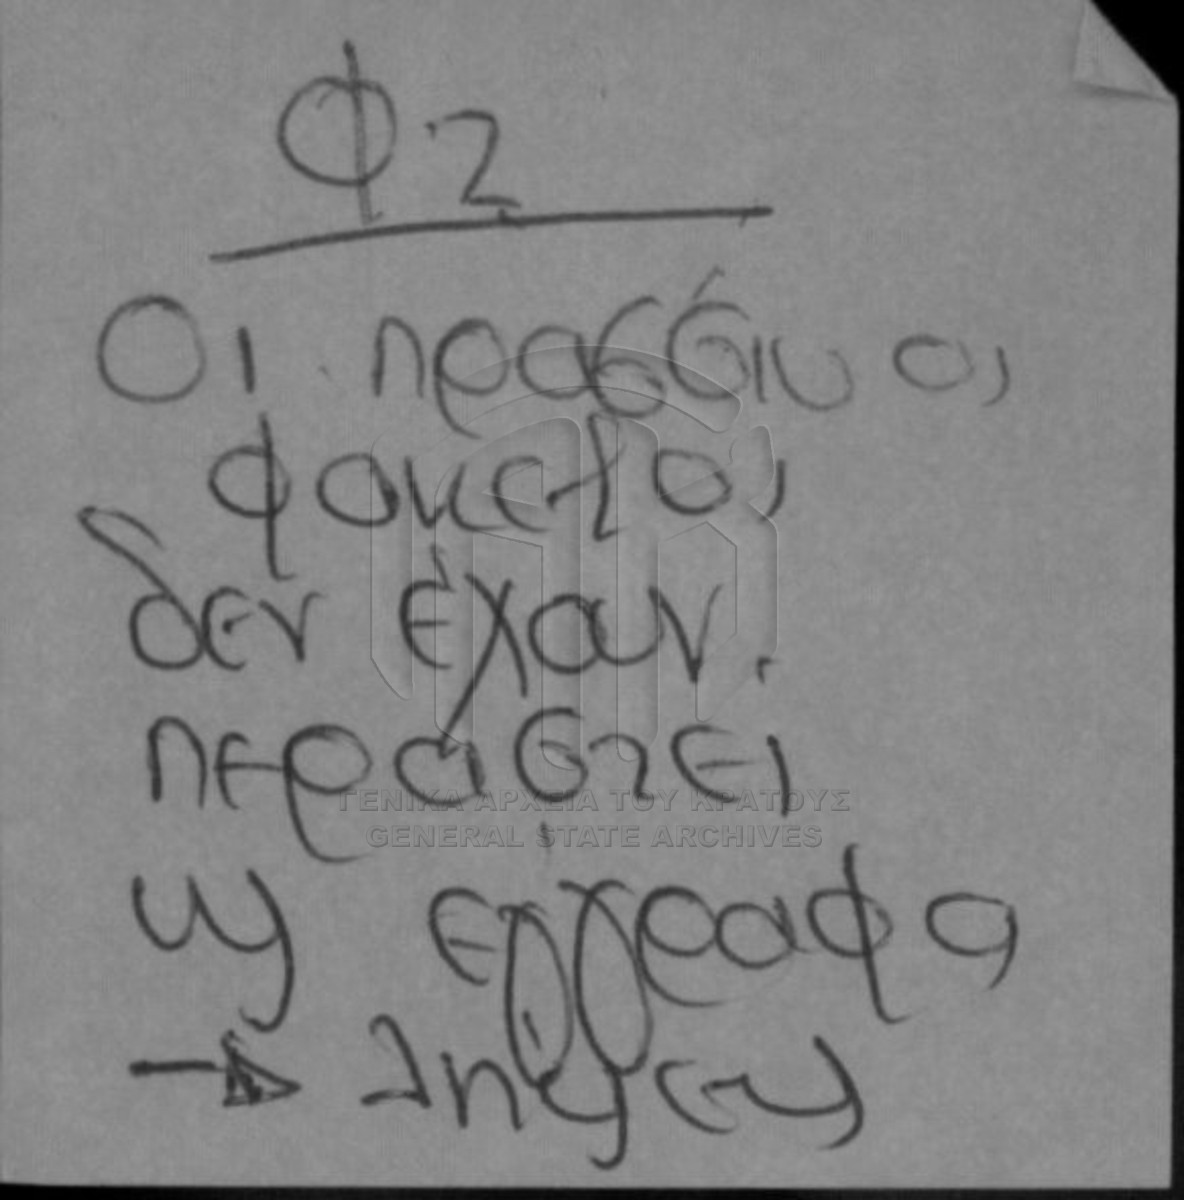 Φ2
Οι πράσινοι
φακελοι
δεν έχουν
περάσει
ως έγγραφα
→ λήψεως
ΓΕΝΙΚΑ ΑΡΧΕΙΑ ΤΟΥ ΚΡΑΤΟΥΣ
GENERAL STATE ARCHIVES